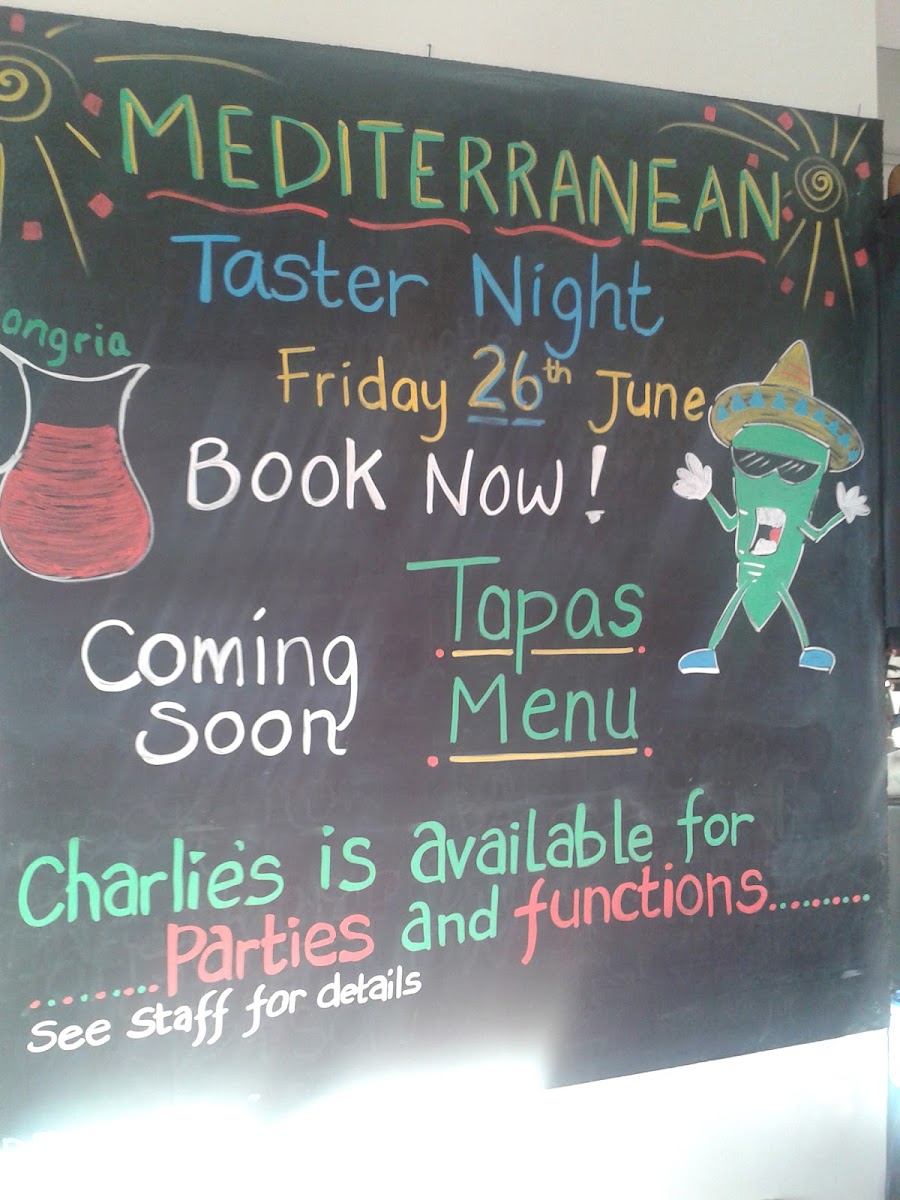 MEDITERRANEAN
Taster Night
ongria
Friday 26th June
BOOK NOW!
Coming Soon
Tapas Menu
Charlie's is available for
.........Parties and functions..........
See Staff for details